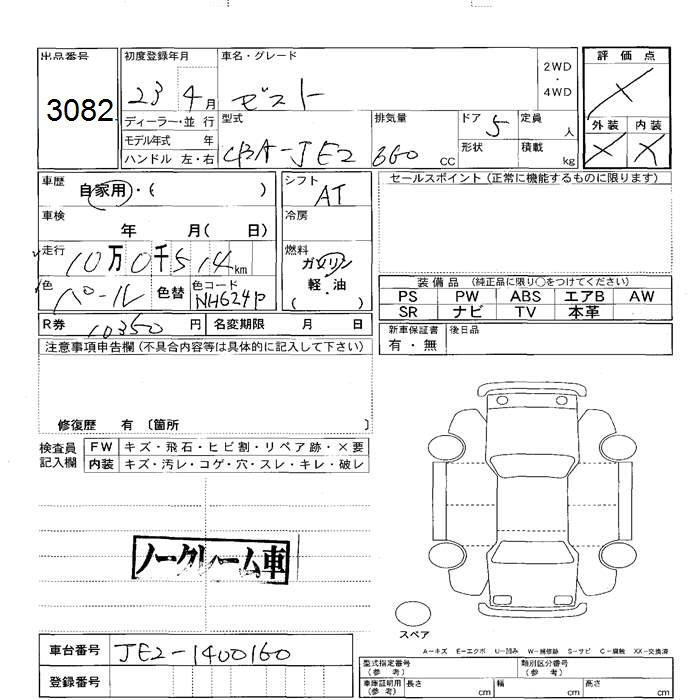 出品番号
3082
初度登録年月
23 4月
車名・グレード
ゼスト
2WD
・
4WD
評価点
×
ディーラー・並行
モデル年式 年
ハンドル 左・右
型式
CBA-JE2
排気量
660 cc
ドア 5
形状
定員 人
積載 kg
外装 内装
× ×
車歴
自家用・( )
シフト
AT
セールスポイント (正常に機能するものに限ります)
車検
年 月( 日)
冷房
走行
10万0千514km
燃料
ガソリン
軽・油
( )
色
パール
色替
色コード
NH624P
装備品 (純正品に限り○をつけてください)
PS PW ABS エアB AW
SR ナビ TV 本革
R券 10350円
名変期限 月 日
新車保証書
有・無
後日品
注意事項申告欄 (不具合内容等は具体的に記入して下さい)
修復歴 有 〔箇所 〕
検査員
記入欄
FW キズ・飛石・ヒビ割・リペア跡・×要
内装 キズ・汚レ・コゲ・穴・スレ・キレ・破レ
ノークレーム車
スペア
A-キズ E-エクボ U-凹み W-補修跡 S-サビ C-腐触 XX-交換済
車台番号 JE2-1400160
登録番号
型式指定番号
(参考)
類別区分番号
(参考)
車庫証明用
(参考)
長さ cm
幅 cm
高さ cm